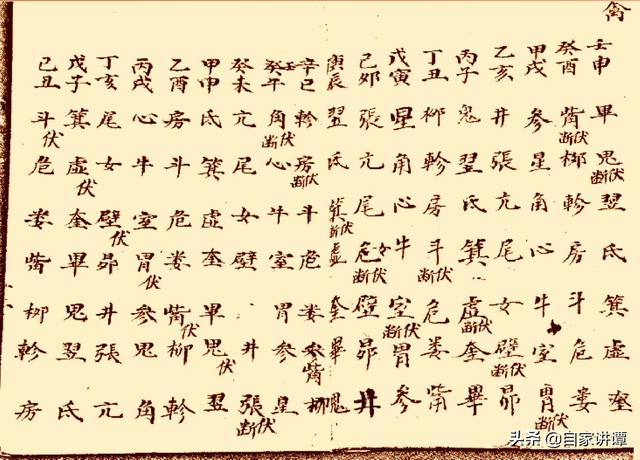 禽
壬申 畢 鬼 断伏 翌 氐 箕 虚 奎
癸酉 觜 断伏 柳 軫 房 斗 危 婁
甲戌 参 星 角 心 牛 室 胃 断伏
乙亥 井 張 亢 尾 女 壁 断伏 昴
丙子 鬼 翌 氐 箕 虚 断伏 奎 畢
丁丑 柳 軫 房 斗 断伏 危 婁 觜
戊寅 星 角 心 牛 室 断伏 胃 参
己卯 張 亢 尾 危女 断伏 壁 昴 井
庚辰 翌 氐 箕 断伏 虚 奎 畢
辛巳 軫 房 断伏 斗 危 婁 参觜 柳
癸壬午 角 断伏 心 牛 室 胃 参 星
癸未 亢 尾 女 壁 井 張 断伏
甲申 氐 箕 虚 奎 畢 鬼 伏 翌
乙酉 房 斗 危 婁 觜 伏 柳 軫
丙戌 心 牛 室 胃 伏 参 鬼 角
丁亥 尾 女 壁 伏 昴 井 張 亢
戊子 箕 虚 伏 奎 畢 鬼 翌 氐
己丑 斗 伏 危 婁 觜 柳 軫 房
头条 @自家讲谭